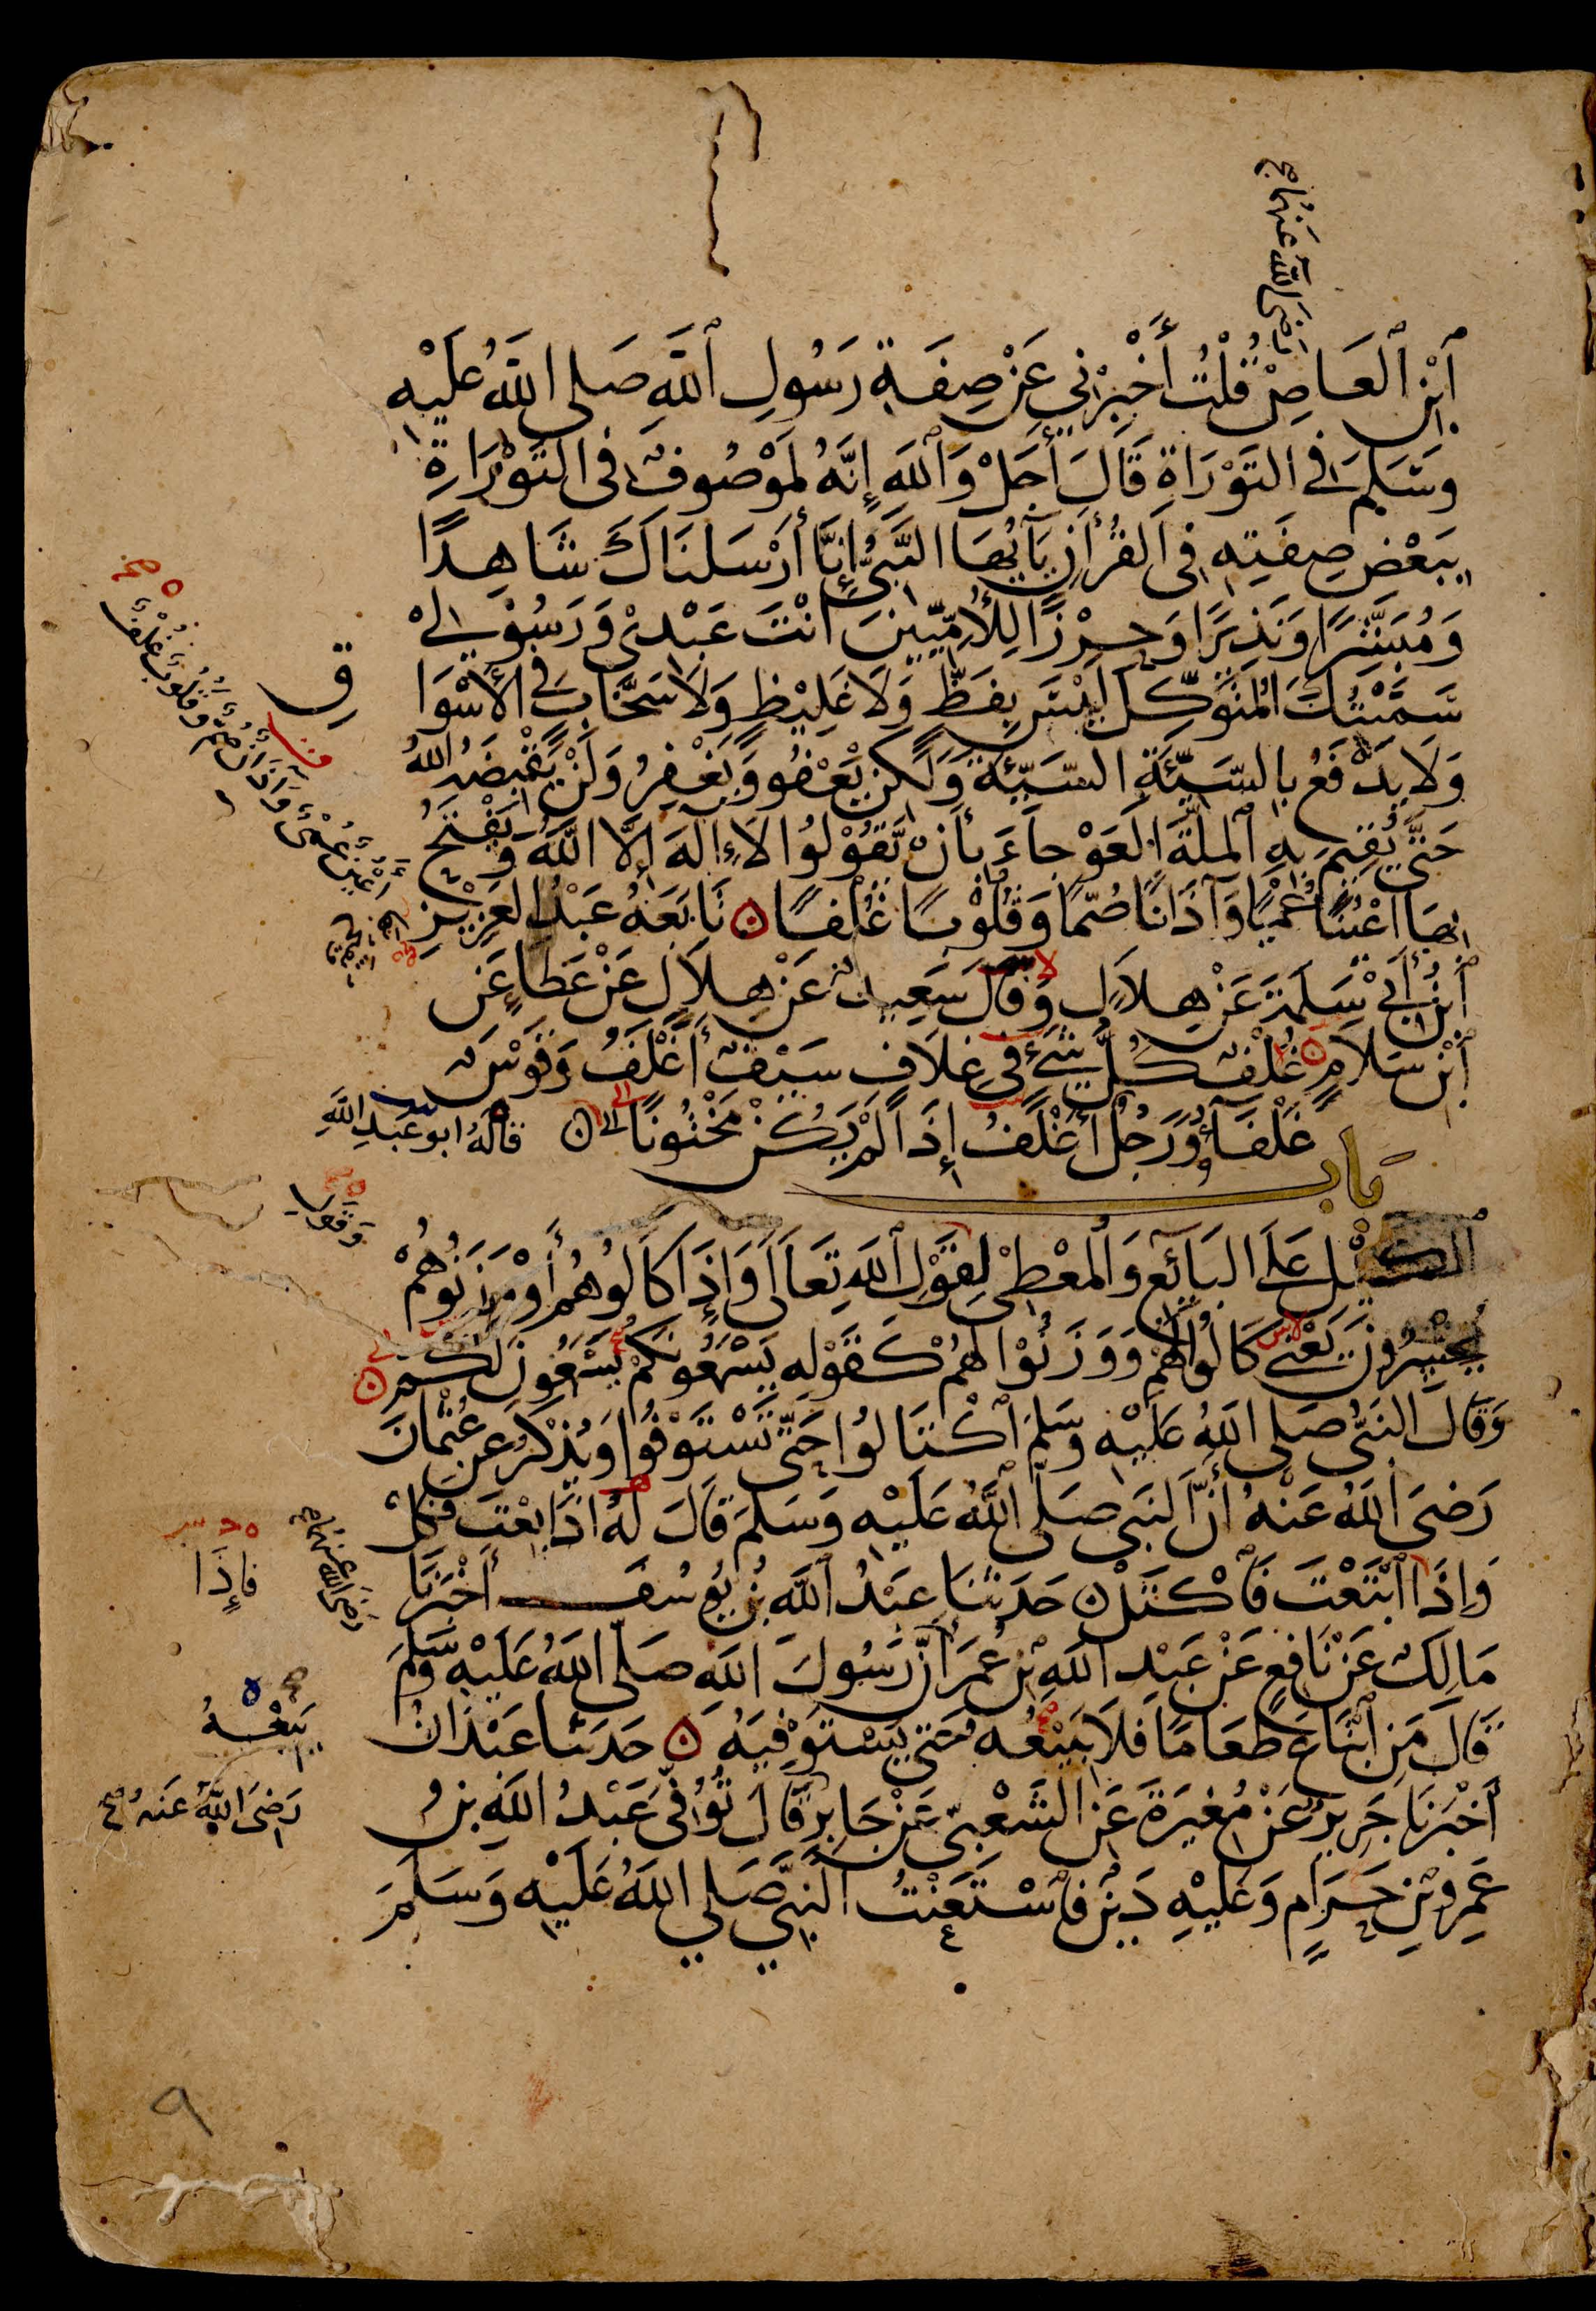 رضي الله عنهما صح
ٱبْنِ ٱلْعَاصِ قُلْتُ أَخْبِرْنِي عَنْ صِفَةِ رَسُولِ ٱللَّهِ صَلى اللَّهُ عَلَيْهِ
وَسَلمَ فِي التَوْرَاةِ قَالَ أَجَلْ وَٱللَّهِ إِنَّهُ لَمَوْصُوفٌ فِي التَوْرَاةِ
بِبَعْضِ صِفَتِهِ فِي القُرْأٓنِ يَآيُّهَا النَّبِيُّ إِنَّا أَرْسَلنَاكَ شَاهِدًا
وَمُبَشِّرًا وَنَذِيرًا وَحِرْزًا لِلْأُمِّيِّينَ أَنْتَ عَبْدِي وَرَسُوْلِيْ
سَمَّيْتُكَ المُتَوَكِّلَ لَيْسَ بِفَظٍّ وَلَا غَلِيْظٍ وَلَا سَخَّابٍ فِي الأَسْوَا
ق
وَلَا يَدْفَعُ بِالسَّيِّئَةِ السَّيِّئَةَ وَلَكِنْ يَعْفُو وَيَغْفِرُ وَلَنْ يَقْبِضَهُ اللَّهُ
حَتَّى يُقِيْمَ بِهِ ٱلمِلَّةَ العَوْجَاءَ بِأَنْ يَقُوْلُوا لَا إِلَهَ إِلَّا اللَّهُ وَيَفْتَحُ
بِهَا أَعْيُنًا عُمْيًا وَآذَانًا صُمًّا وَقُلُوْبًا غُلْفًا ۝ تَابَعَهُ عَبْدُ العَزِيْزِ
ٱبْنُ أَبِيْ سَلَمَةَ عَنْ هِلَالٍ وَقَالَ سَعِيدٌ عَنْ هِلَالٍ عَنْ عَطَاءٍ عَنِ
ٱبْنِ سَلَامٍ ۝ غُلْفٌ كُلُّ شَيْءٍ فِي غِلَافٍ سَيْفٌ أَغْلَفُ وَقَوْسٌ
غَلْفَاءُ وَرَجُلٌ أَغْلَفُ إِذَا لَمْ يَكُنْ مَخْتُونًا ۝ قَالَهُ ابو عَبدِ اللَّهِ
باب
ٱلكَيْلِ عَلَى البَائِعِ وَالمُعْطِيْ لِقَوْلِ ٱللَّهِ تَعَالَى وَإِذَا كَالُوهُمْ أَوْ وَزَنُوهُمْ
يُخْسِرُونَ يَعْنِي كَالُوا لَهُمْ وَوَزَنُوْا لَهُمْ كَقَوْلِهِ يَسْمَعُونَكُمْ يَسْمَعُونَ لَكُمْ ۝
وَقَالَ النَبِيُّ صَلى اللَّهُ عَلَيْهِ وَسَلمَ ٱكْتَالُوا حَتَّى تَسْتَوْفُوا وَيُذْكَرُ عَنْ عُثْمَانَ
رَضِيَ اللَّهُ عَنْهُ أَنَّ النَبِي صَلَّى اللَّهُ عَلَيْهِ وَسَلمَ قَالَ لَهُ اذَا بِعْتَ فَكِلْ
وَإِذَا ابْتَعْتَ فَٱكْتَلْ ۝ حَدَثَنَا عَبْدُ ٱللَّهِ بْنُ يُوسُفَ أَخْبَرَنَا
مَالِكٌ عَنْ نَافِعٍ عَنْ عَبْدِ اللَّهِ بْنِ عُمَرَ أَنَّ رَسُولَ اللَّهِ صَلَّى اللَّهُ عَلَيْهِ وَسَلَّمَ
قَالَ مَنِ ٱبْتَاعَ طَعَامًا فَلَا يَبِيْعُهُ حَتَّى يَسْتَوْفِيَهُ ۝ حَدَثَنا عَبْدَانُ
أَخْبَرَنَا جَرِيرٌ عَنْ مُغِيرَةَ عَنِ الشَّعْبِيِّ عَنْ جَابِرٍ قَالَ تُوُفِّيَ عَبْدُ اللَّهِ بْنُ
عَمْرِو بْنِ حَرَامٍ وَعَلَيْهِ دَيْنٌ فَٱسْتَعَنْتُ النَّبِيَّ صَلى اللَّهُ عَلَيْهِ وَسَلَمَ
أَعْيُنٌ عُمْيٌ وَآذَانٌ صُمٌّ وَقُلُوبٌ غُلْفٌ
وَقَولِ
رَضِيَ اللَّهُ عَنهُما صح
فإِذَا
يَبِعْهُ
رَضِيَ اللَّهُ عَنهُ صح
٩